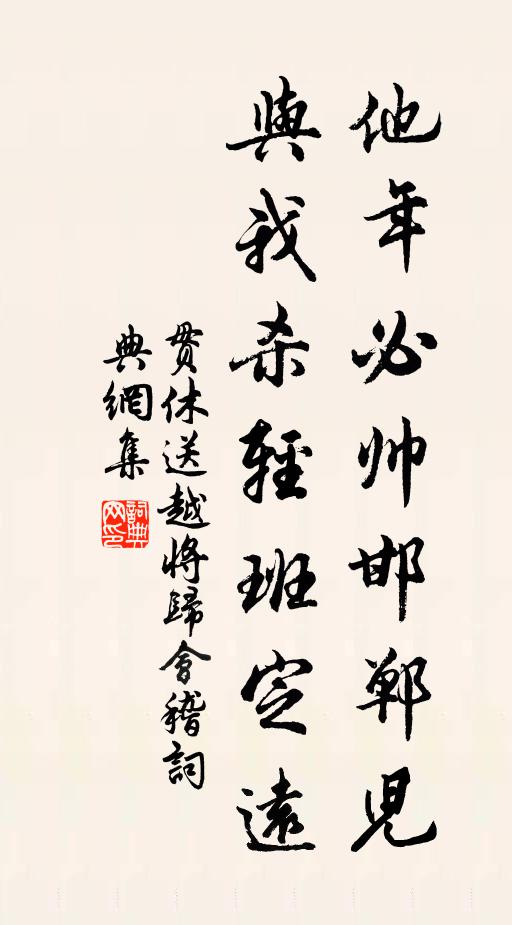 他年必帅邯郸兒
與我杀輕班定遠
貫休送越將歸會稽詞
典網集
詞典网印